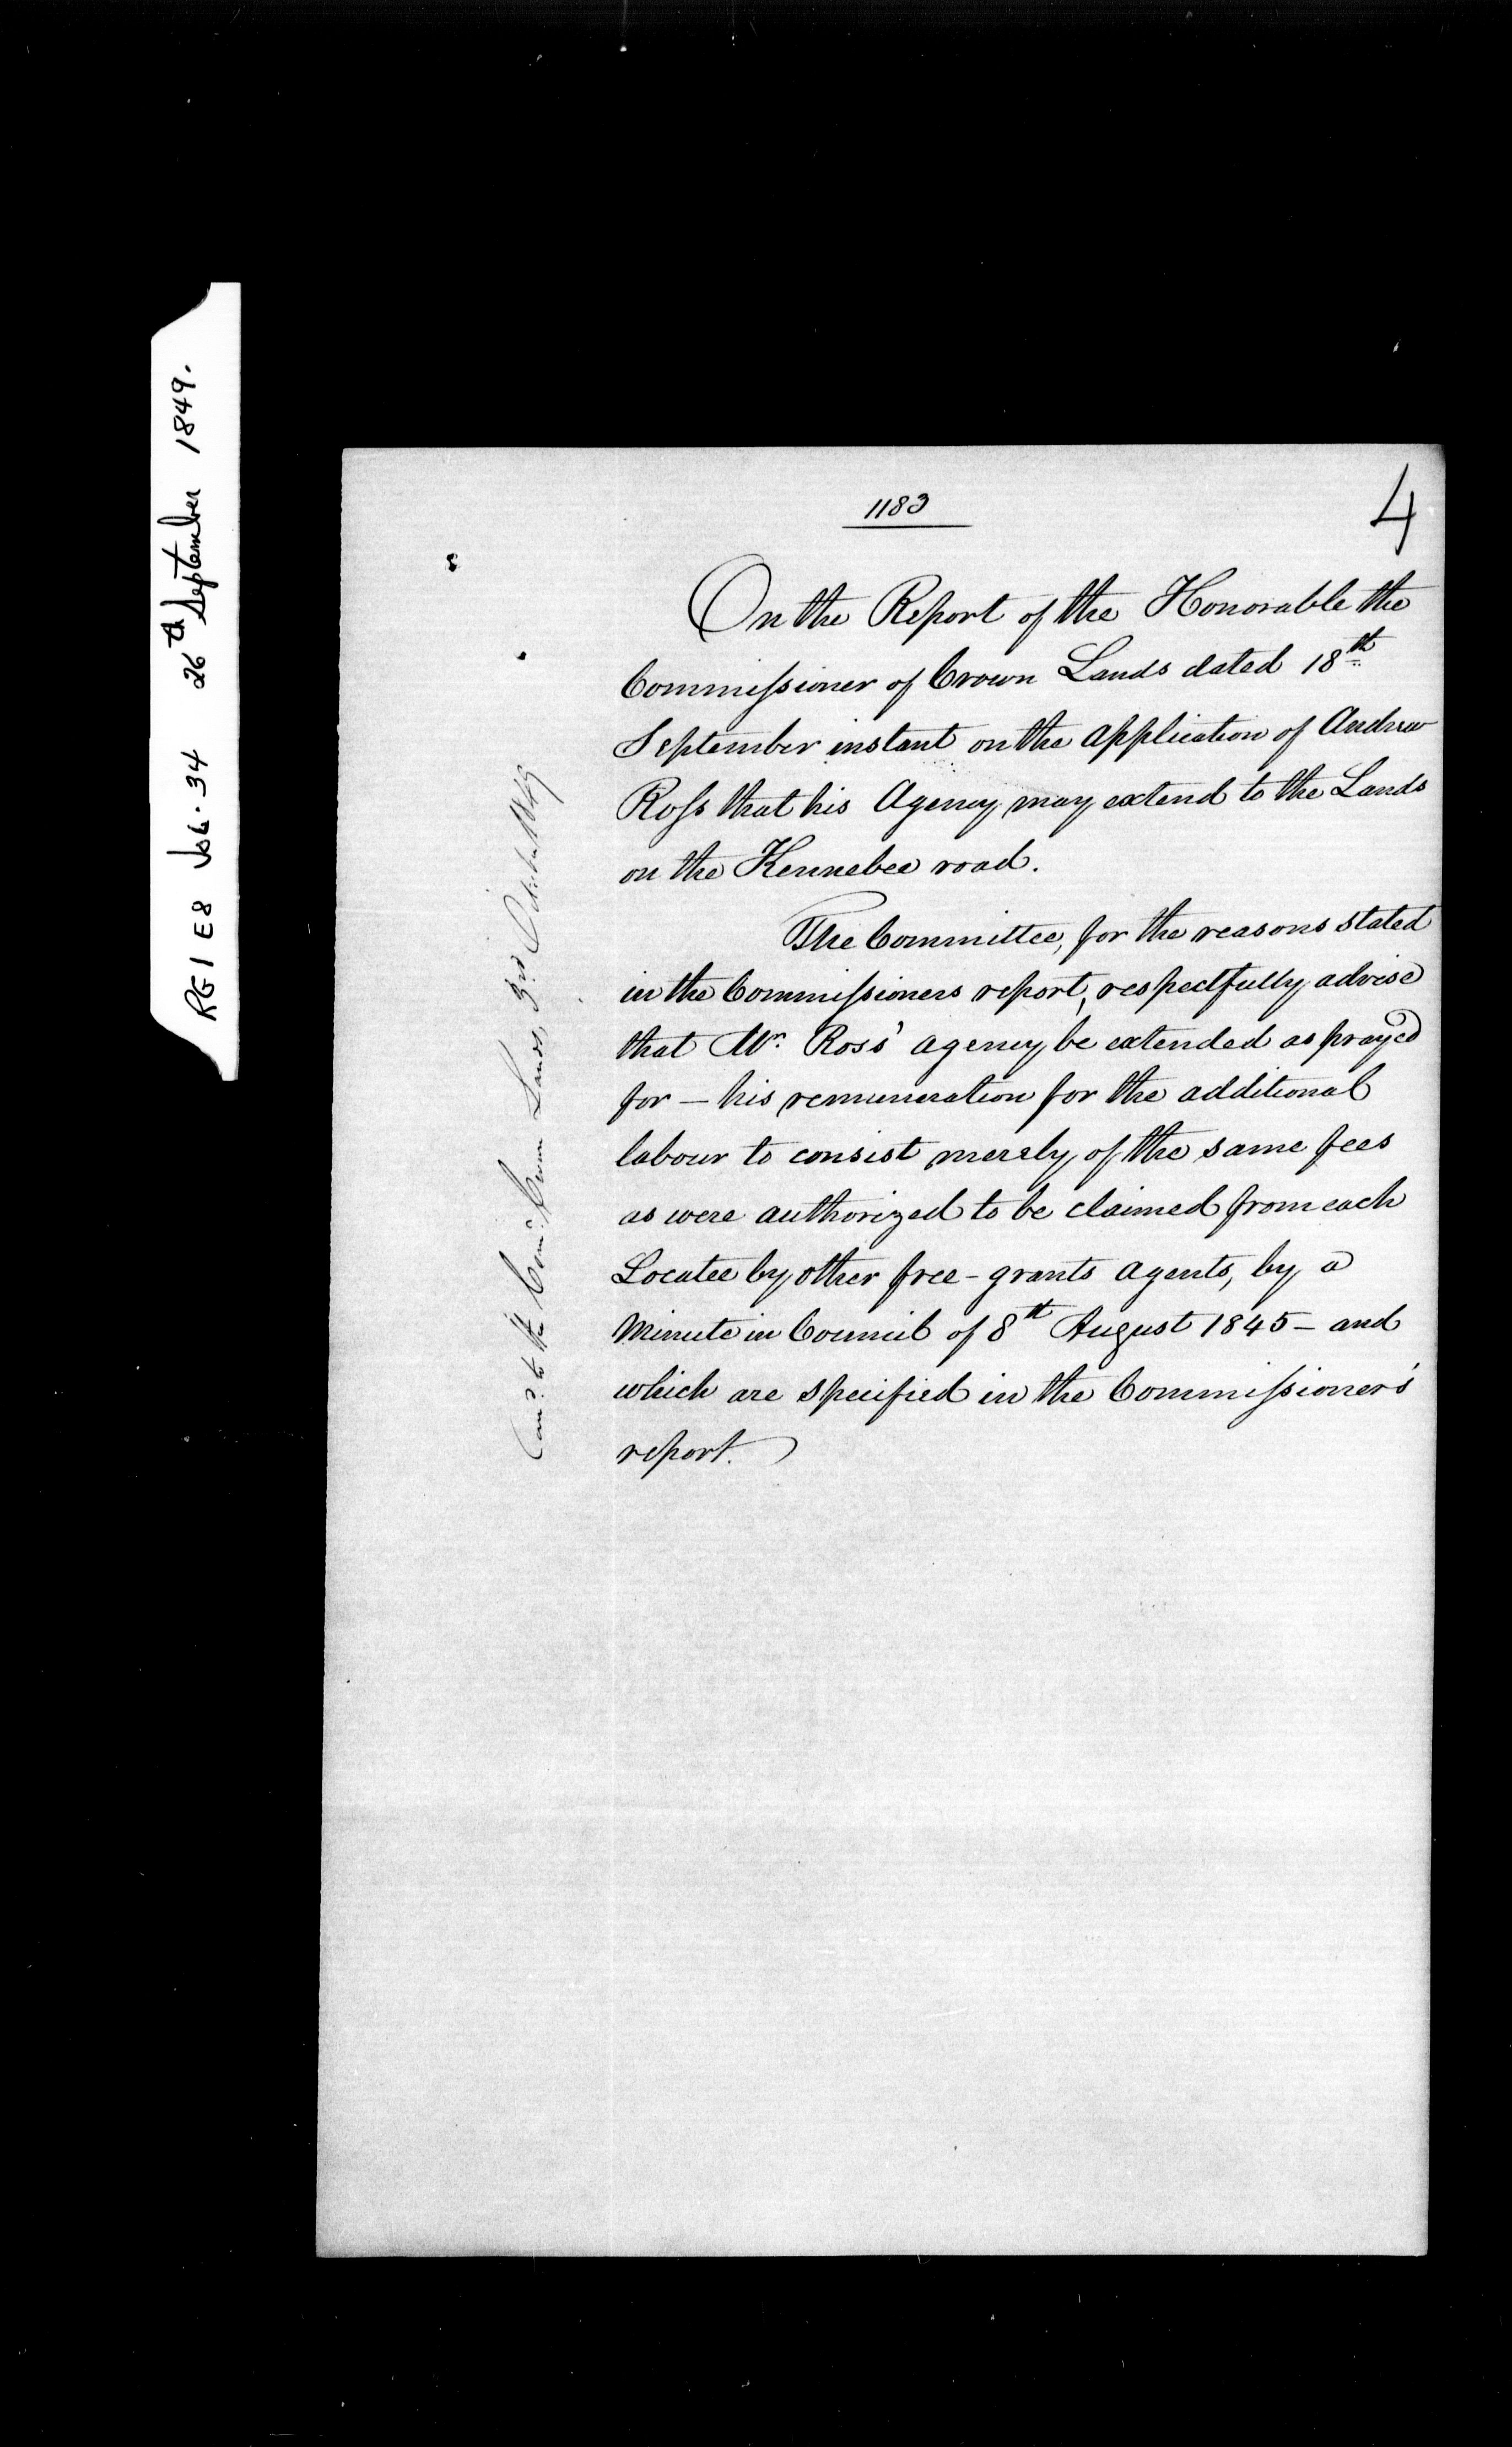 RG1 E8 Vol. 34 26th September 1849.
1183
4
On the Report of the Honorable the
Commissioner of Crown Lands dated 18th
September instant on the application of Andrew
Ross that his Agency may extend to the Lands
on the Kennebec road.
The Committee, for the reasons stated
in the Commissioners report, respectfully advise
that Mr. Ross' agency be extended as prayed
for — his remuneration for the additional
labour to consist merely of the same fees
as were authorized to be claimed from each
Locatee by other free-grants agents, by a
Minute in Council of 8th August 1845 — and
which are specified in the Commissioner's
report.
to the Comr. Crown Lands, 3rd October 1849